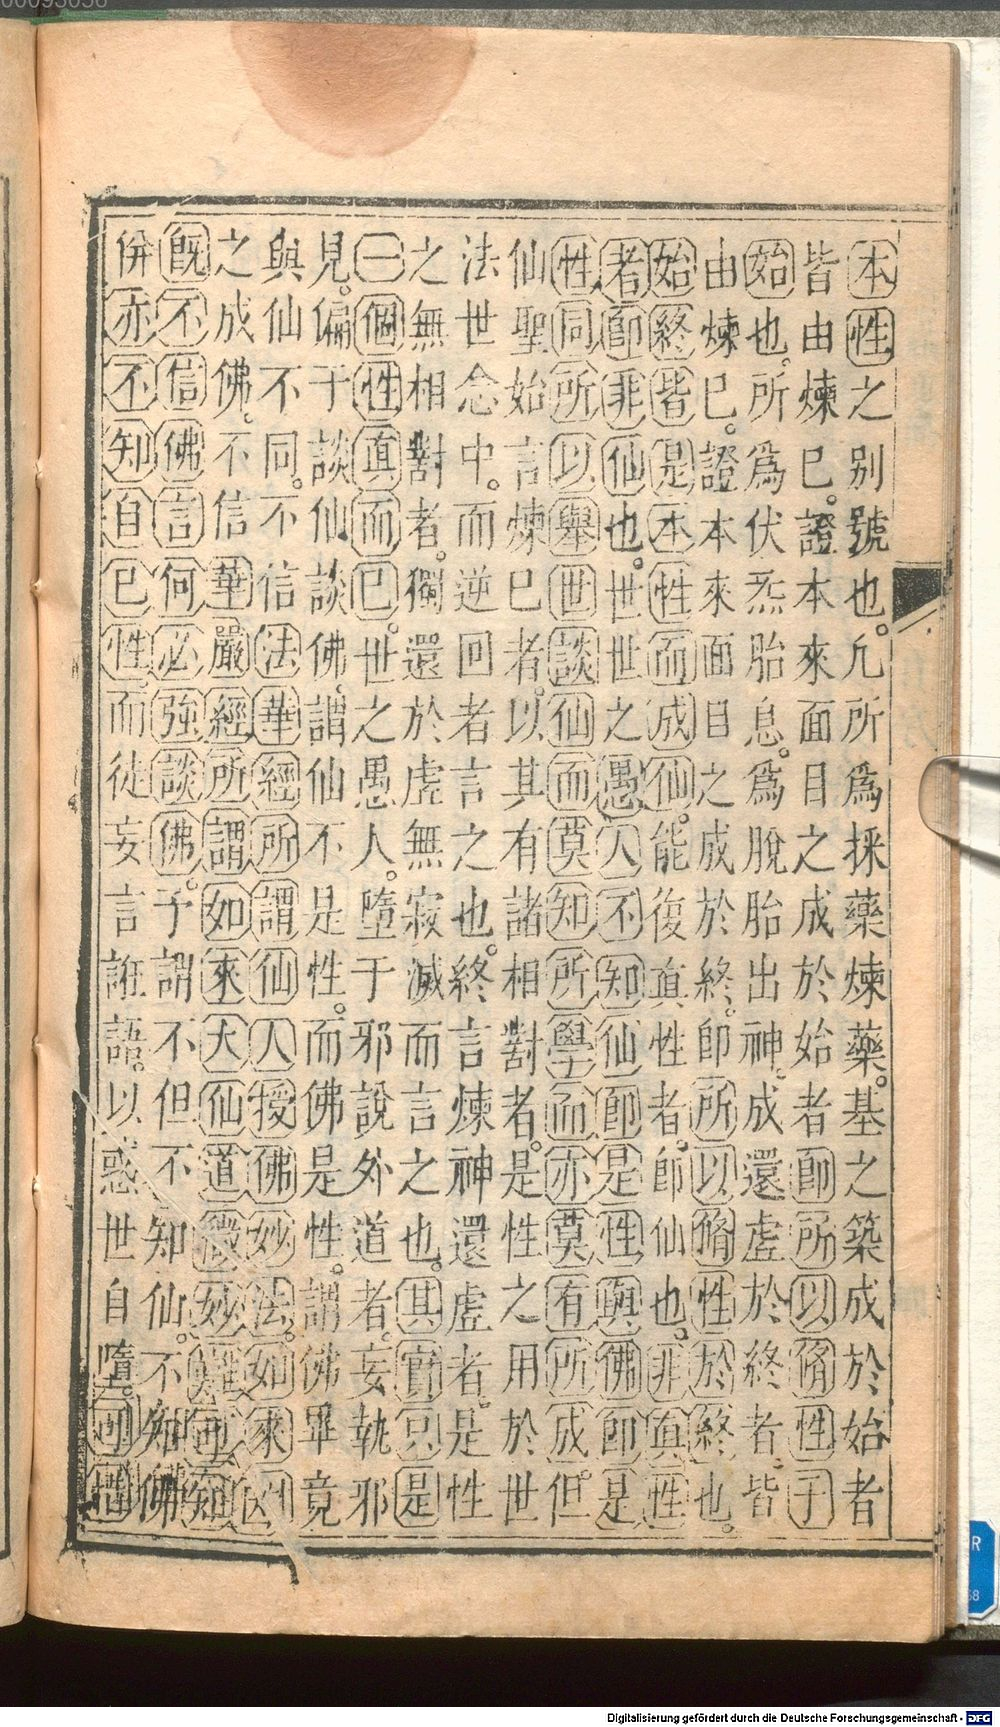 本性之别號也。凡所爲採藥煉藥。基之築成於始者
皆由煉巳。證本來面目之成於始者卽所以脩性于
始也。所爲伏炁胎息。爲脫胎出神。成還虛於終者。皆
由煉巳。證本來面目之成於終。卽所以脩性於終也。
始終皆是本性而成仙。能復真性者。卽仙也。非真性
者卽非仙也。世世之愚人不知仙卽是性與佛卽是
性同所以舉世談仙而莫知所學而亦莫有所成。但
仙聖始言煉巳者。以其有諸相對者。是性之用於世
法世念中。而逆回者言之也。終言煉神還虛者。是性
之無相對者。獨還於虛無寂滅而言之也。其實只是
一個性真而已。世之愚人。墮于邪說外道者。妄執邪
見。偏于談仙談佛。謂仙不是性。而佛是性。謂佛畢竟
與仙不同。不信法華經所謂仙人授佛妙法。如來因
之成佛。不信華嚴經所謂如來大仙道微妙難可知
旣不信佛言何必強談佛。予謂不但不知仙。不知佛
併亦不知自巳性。而徒妄言誑語。以惑世自墮。可惜
00093056
Digitalisierung gefördert durch die Deutsche Forschungsgemeinschaft - DFG